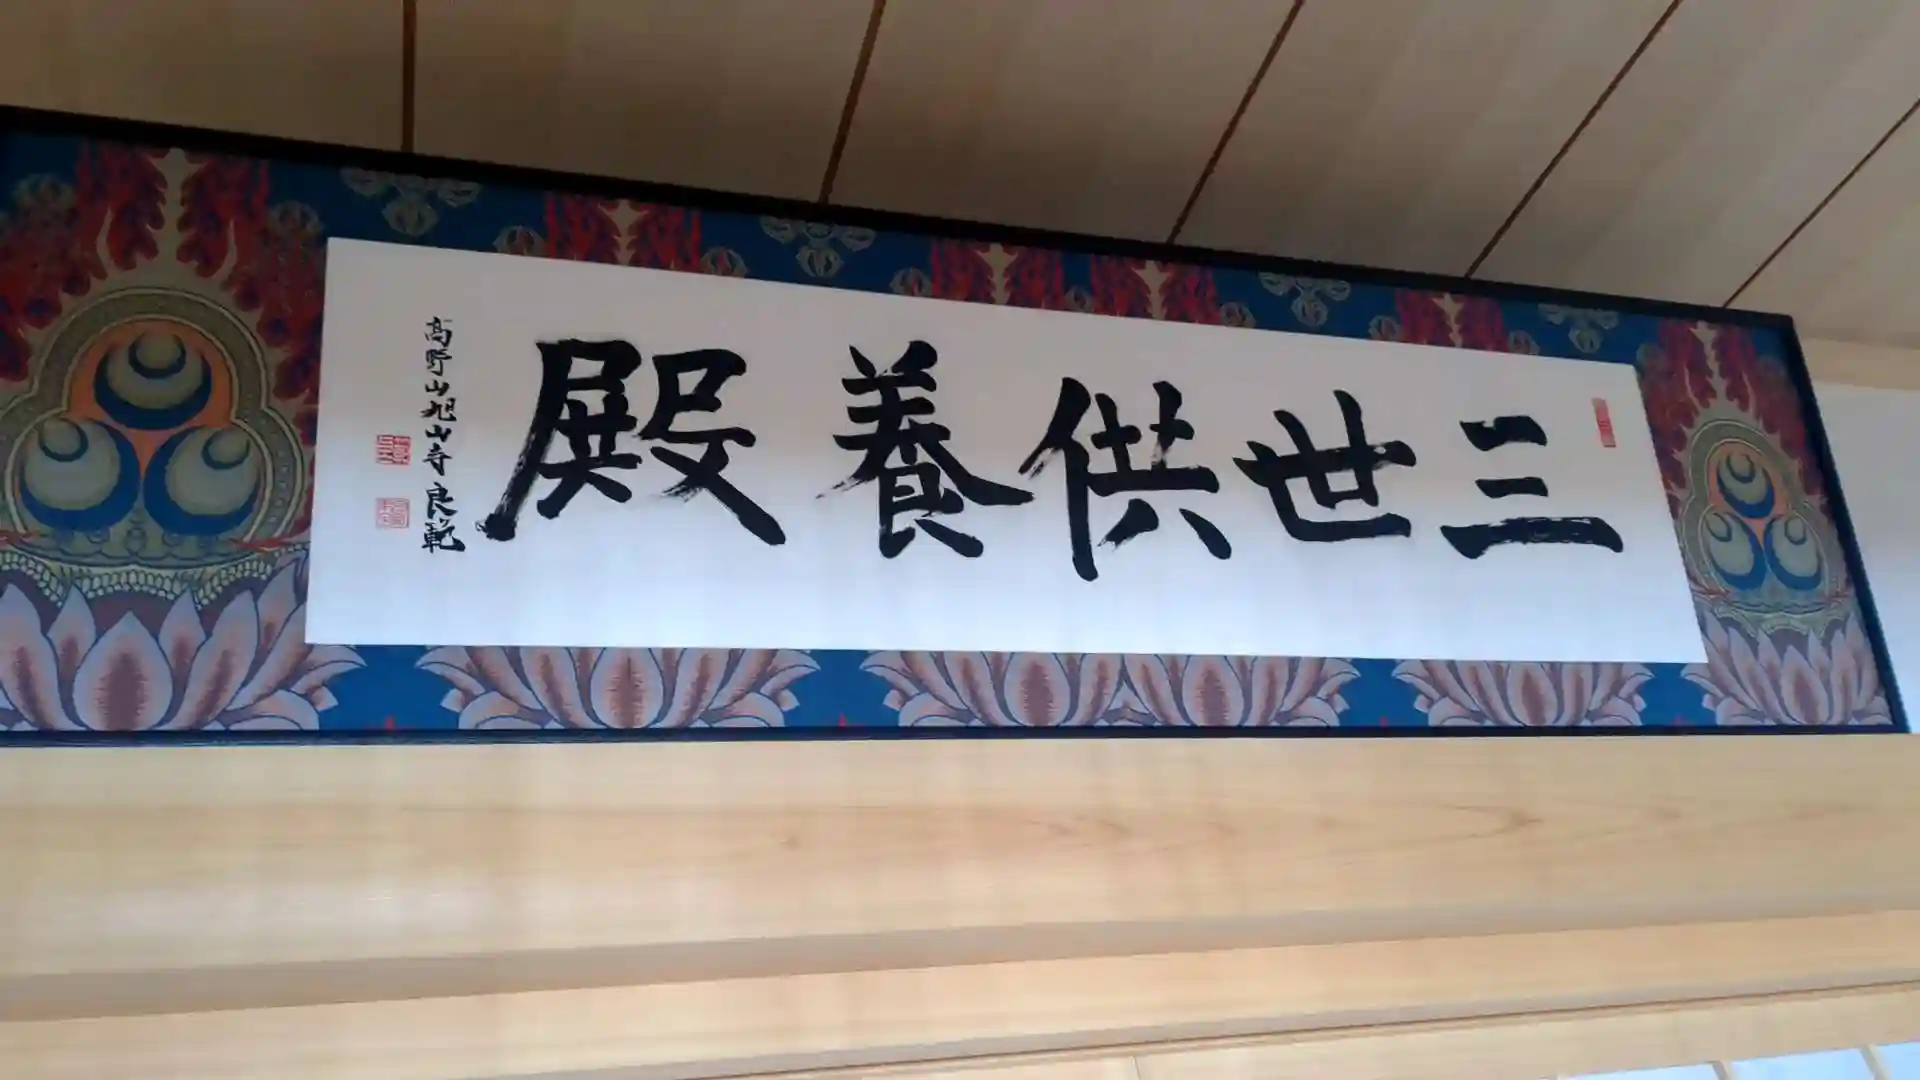 三世供養殿
高野山旭山寺 良範